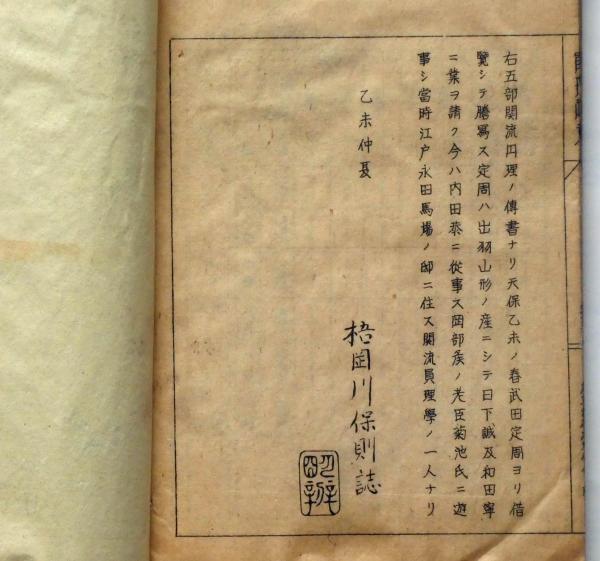 右五部関流円理ノ傳書ナリ天保乙未ノ春武田定周ヨリ借
覽シテ謄寫ス定周ハ出羽山形ノ産ニシテ日下誠及和田寧
ニ業ヲ請ク今ハ内田恭ニ從事ス岡部矦ノ老臣菊池氏ニ遊
事シ當時江戸永田馬塲ノ邸ニ住ス関流員理學ノ一人ナリ
乙未仲夏
川保則誌